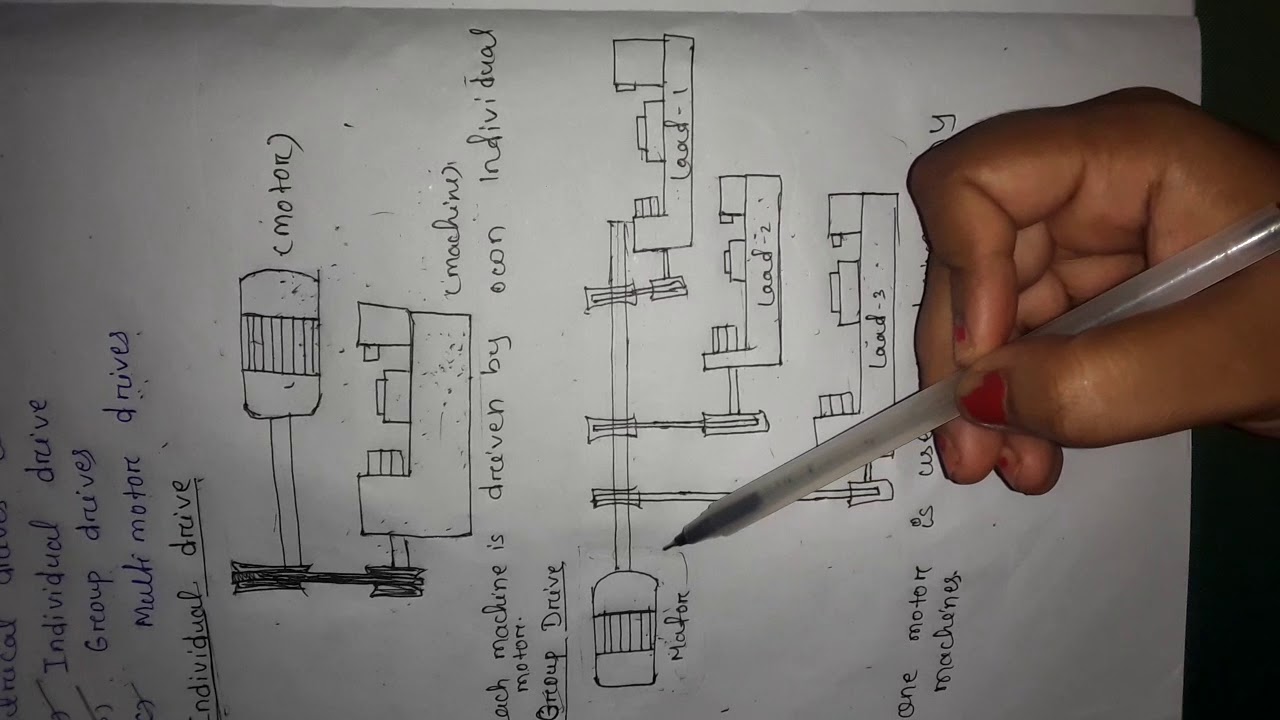 Individual drive
Group drives
Multi motor drives
Individual drive
(motor)
(machine)
each machine is driven by ocon Individual
motor.
Group Drive
Load-1
Load-2
Load-3
Motor
one motor is
machines